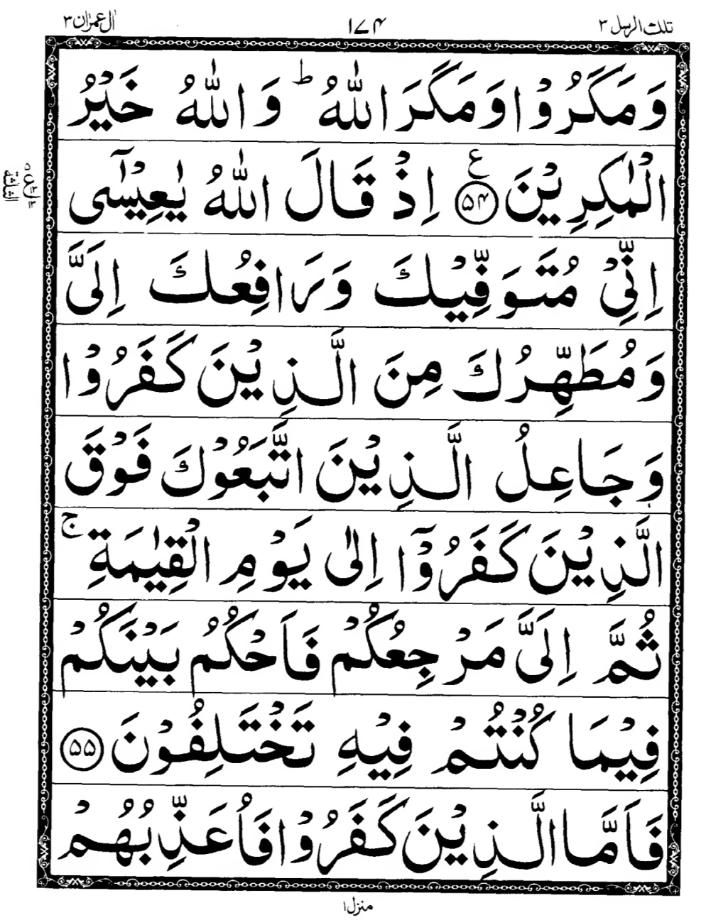 تلك الرسل ٣
١٧٤
اٰل عمرٰن ٣
وَمَكَرُوْا وَمَكَرَ اللّٰهُ ؕ وَاللّٰهُ خَيْرُ
الْمٰكِرِيْنَ ۝٥٤ ع اِذْ قَالَ اللّٰهُ يٰعِيْسٰٓى
اِنِّيْ مُتَوَفِّيْكَ وَرَافِعُكَ اِلَيَّ
وَمُطَهِّرُكَ مِنَ الَّذِيْنَ كَفَرُوْا
وَجَاعِلُ الَّذِيْنَ اتَّبَعُوْكَ فَوْقَ
الَّذِيْنَ كَفَرُوْٓا اِلٰى يَوْمِ الْقِيٰمَةِ ۚ
ثُمَّ اِلَيَّ مَرْجِعُكُمْ فَاَحْكُمُ بَيْنَكُمْ
فِيْمَا كُنْتُمْ فِيْهِ تَخْتَلِفُوْنَ ۝٥٥
فَاَمَّا الَّذِيْنَ كَفَرُوْا فَاُعَذِّبُهُمْ
منزل ١